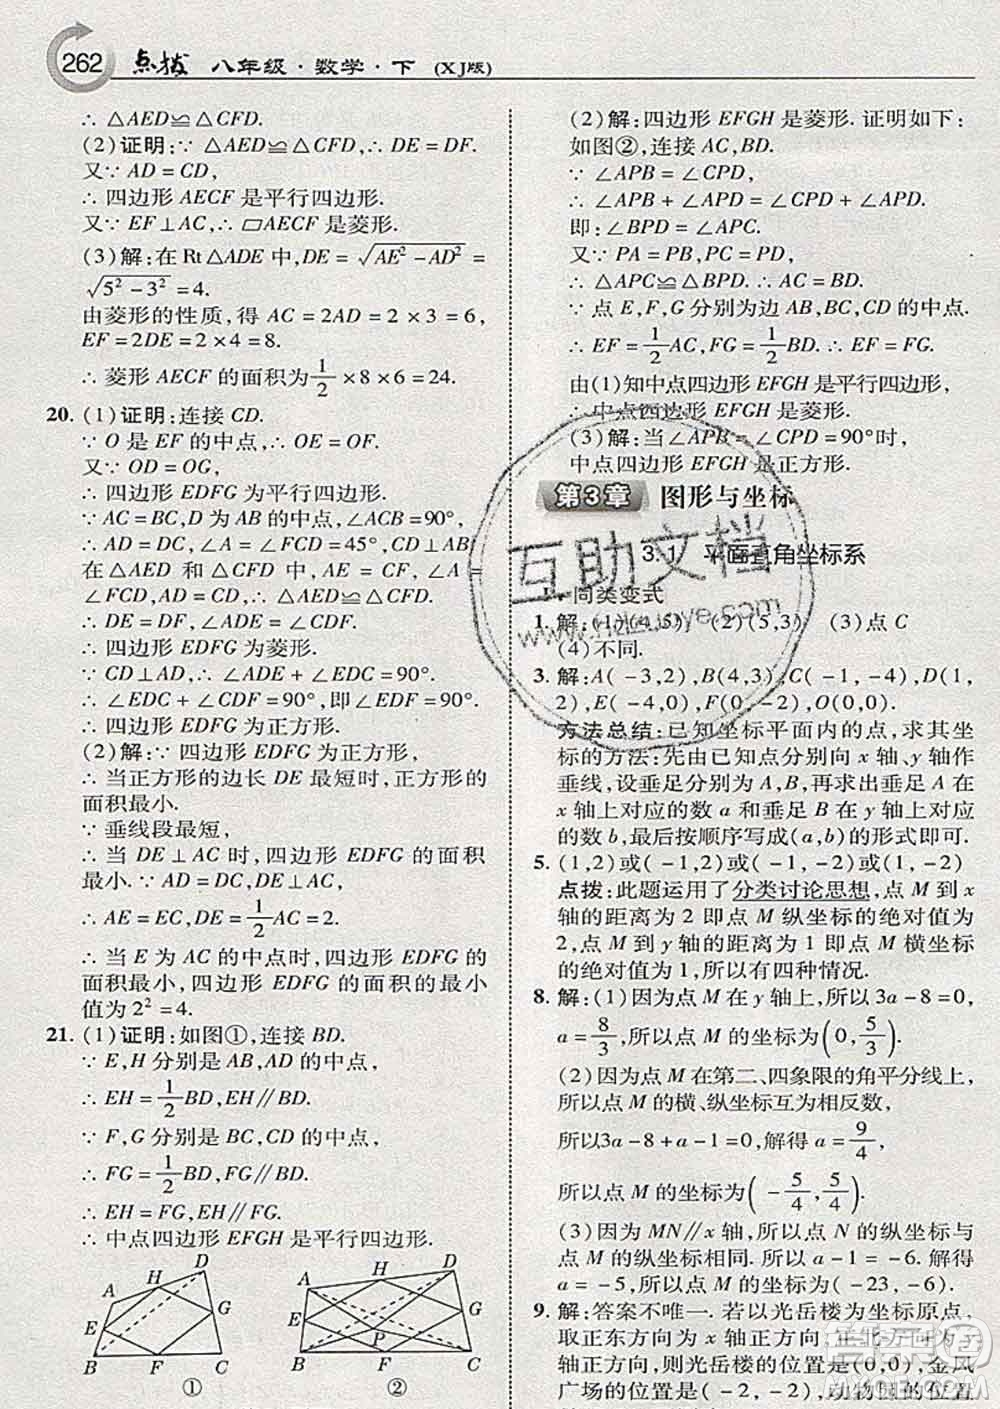 262 点拨 八年级·数学·下 (XJ版)
∴ △AED≌△CFD.
(2)证明:∵ △AED≌△CFD,∴ DE = DF.
又∵ AD = CD,
∴ 四边形 AECF 是平行四边形.
又∵ EF⊥AC,∴ ▱AECF 是菱形.
(3)解:在 Rt△ADE 中,ED = √(AE² - AD²) =
√(5² - 3²) = 4.
由菱形的性质,得 AC = 2AD = 2 × 3 = 6,
EF = 2DE = 2 × 4 = 8.
∴ 菱形 AECF 的面积为 1/2 × 8 × 6 = 24.
20. (1)证明:连接 CD.
∵ O 是 EF 的中点,∴ OE = OF.
又∵ OD = OG,
∴ 四边形 EDFG 为平行四边形.
∵ AC = BC,D 为 AB 的中点,∠ACB = 90°,
∴ AD = CD,∠A = ∠FCD = 45°,CD⊥AD.
在△ADE 与△CDF 中,AD = CD,∠A = ∠FCD,
AE = CF,∴ △ADE≌△CDF.
∴ DE = DF,∠ADE = ∠CDF.
∴ 四边形 EDFG 为菱形.
∵ CD⊥AD,∴ ∠ADE + ∠EDC = 90°.
∴ ∠EDC + ∠CDF = 90°,即∠EDF = 90°.
∴ 四边形 EDFG 为正方形.
(2)解:∵ 四边形 EDFG 为正方形,
∴ 当正方形的边长 DE 最短时,正方形的
面积最小.
∵ 垂线段最短,
∴ 当 DE⊥AC 时,四边形 EDFG 的面积
最小.∵ AD = DC,DE⊥AC,
∴ AE = EC,DE = 1/2 AC = 2.
∴ 当 E 为 AC 的中点时,四边形 EDFG 的
面积最小,四边形 EDFG 的面积的最小
值为 2² = 4.
21. (1)证明:如图①,连接 BD.
∵ E,H 分别是 AB,AD 的中点,
∴ EH = 1/2 BD,EH∥BD.
∵ F,G 分别是 BC,CD 的中点,
∴ FG = 1/2 BD,FG∥BD.
∴ EH = FG,EH∥FG.
∴ 中点四边形 EFGH 是平行四边形.
A H D G E B F C
①
A H D G E P B F C
②
(2)解:四边形 EFGH 是菱形. 证明如下:
如图②,连接 AC,BD.
∵ ∠APB = ∠CPD,
∴ ∠APB + ∠APD = ∠CPD + ∠APD.
即:∠BPD = ∠APC.
又∵ PA = PB,PC = PD,
∴ △APC≌△BPD.∴ AC = BD.
∵ 点 E,F,G 分别为边 AB,BC,CD 的中点.
∴ EF = 1/2 AC,FG = 1/2 BD.∴ EF = FG.
由(1)知中点四边形 EFGH 是平行四边形,
∴ 中点四边形 EFGH 是菱形.
(3)解:当∠APB = ∠CPD = 90°时,
中点四边形 EFGH 是正方形.
第3章 图形与坐标
3.1 平面直角坐标系
同类变式
1. 解:(1)(4,5) (2)(5,3) (3)点 C
(4)不同.
3. 解:A( -3,2),B(4,3),C(4, -3),
D( -2, -2),E( -4,0),F(0, -2),O(0,0).
方法总结:已知坐标平面内的点,求其坐
标的方法:先由已知点分别向 x 轴、y 轴作
垂线,设垂足分别为 A,B,再求出垂足 A 在
x 轴上对应的数 a 和垂足 B 在 y 轴上对应
的数 b,最后按顺序写成(a,b)的形式即可.
5. (1,2)或( -1,2)或( -1, -2)或(1, -2)
点拨:此题运用了分类讨论思想,点 M 到 x
轴的距离为 2 即点 M 纵坐标的绝对值为
2,点 M 到 y 轴的距离为 1 即点 M 横坐标
的绝对值为 1,所以有四种情况.
8. 解:(1)因为点 M 在 y 轴上,所以 3a - 8 = 0,
a = 8/3,所以点 M 的坐标为(0, 5/3).
(2)因为点 M 在第二、四象限的角平分线上,
所以点 M 的横、纵坐标互为相反数,
所以3a - 8 + a - 1 = 0,解得 a = 9/4,
所以点 M 的坐标为( -5/4, 5/4).
(3)因为 MN∥x 轴,所以点 N 的纵坐标与
点 M 的纵坐标相同. 所以 a - 1 = -6. 解得
a = -5,所以点 M 的坐标为( -23, -6).
9. 解:答案不唯一. 若以光岳楼为坐标原点,
取正东方向为 x 轴正方向,正北方向为 y
轴正方向,则光岳楼的位置是(0,0),金凤
广场的位置是( -2, -2),动物园的位置
互助文档